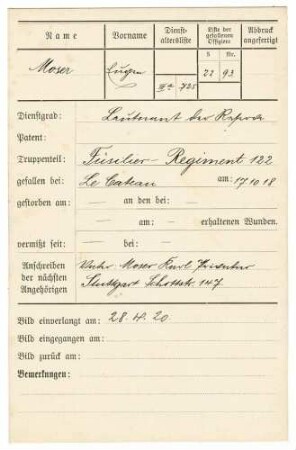 Name Vorname Dienst- altersliste Liste der gefallenen Offiziere Abdruck angefertigt
S. Nr.
Moser Eugen 725 22 93
Dienstgrad: Leutnant der Reserve
Patent:
Truppenteil: Füsilier-Regiment 122
gefallen bei: Le Cateau am: 17.10.18
gestorben am: — an den bei: —
— am: — erhaltenen Wunden.
vermißt seit: — bei: —
Anschreiben der nächsten Angehörigen
Vater: Moser Karl
Stuttgart 147
Bild einverlangt am: 28.4.20.
Bild eingegangen am:
Bild zurück am:
Bemerkungen: